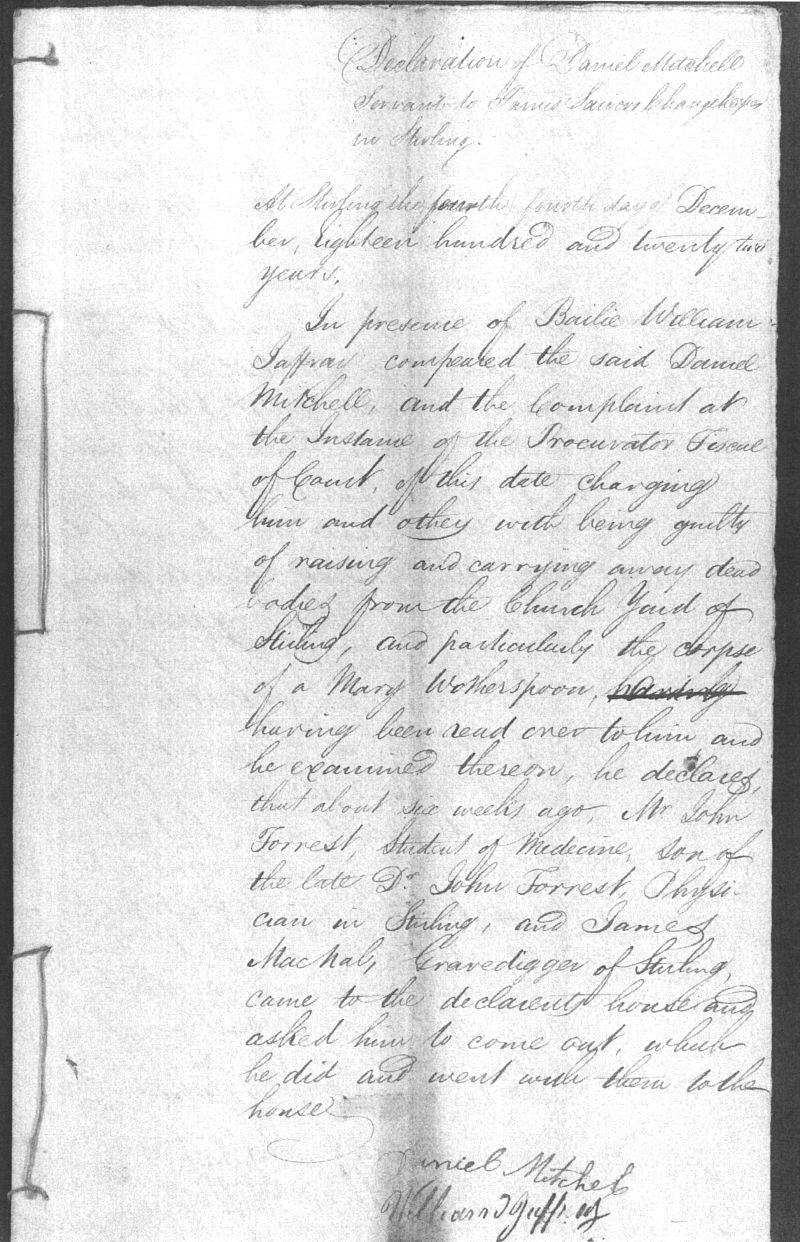 Declaration of Daniel Mitchell
Servant to James Changekeeper
in Stirling.
At Stirling the fourth fourth day of Decem-
ber, Eighteen hundred and twenty two
years.
In presence of Bailie William
Jaffray compeared the said Daniel
Mitchell, and the Complaint at
the Instance of the Procurator Fiscal
of Court, of this date charging
him and others with being guilty
of raising and carrying away dead
bodies from the Church Yard of
Stirling, and particularly the corpse
of a Mary Wotherspoon, having
having been read over to him and
he examined thereon, he declares,
that about six weeks ago, Mr John
Forrest, Student of Medicine, son of
the late Dr John Forrest, Physi-
cian in Stirling, and James
MacNab, Gravedigger of Stirling,
came to the declarents house and
asked him to come out, which
he did and went with them to the
house
Daniel Mitchel
William Jaffray